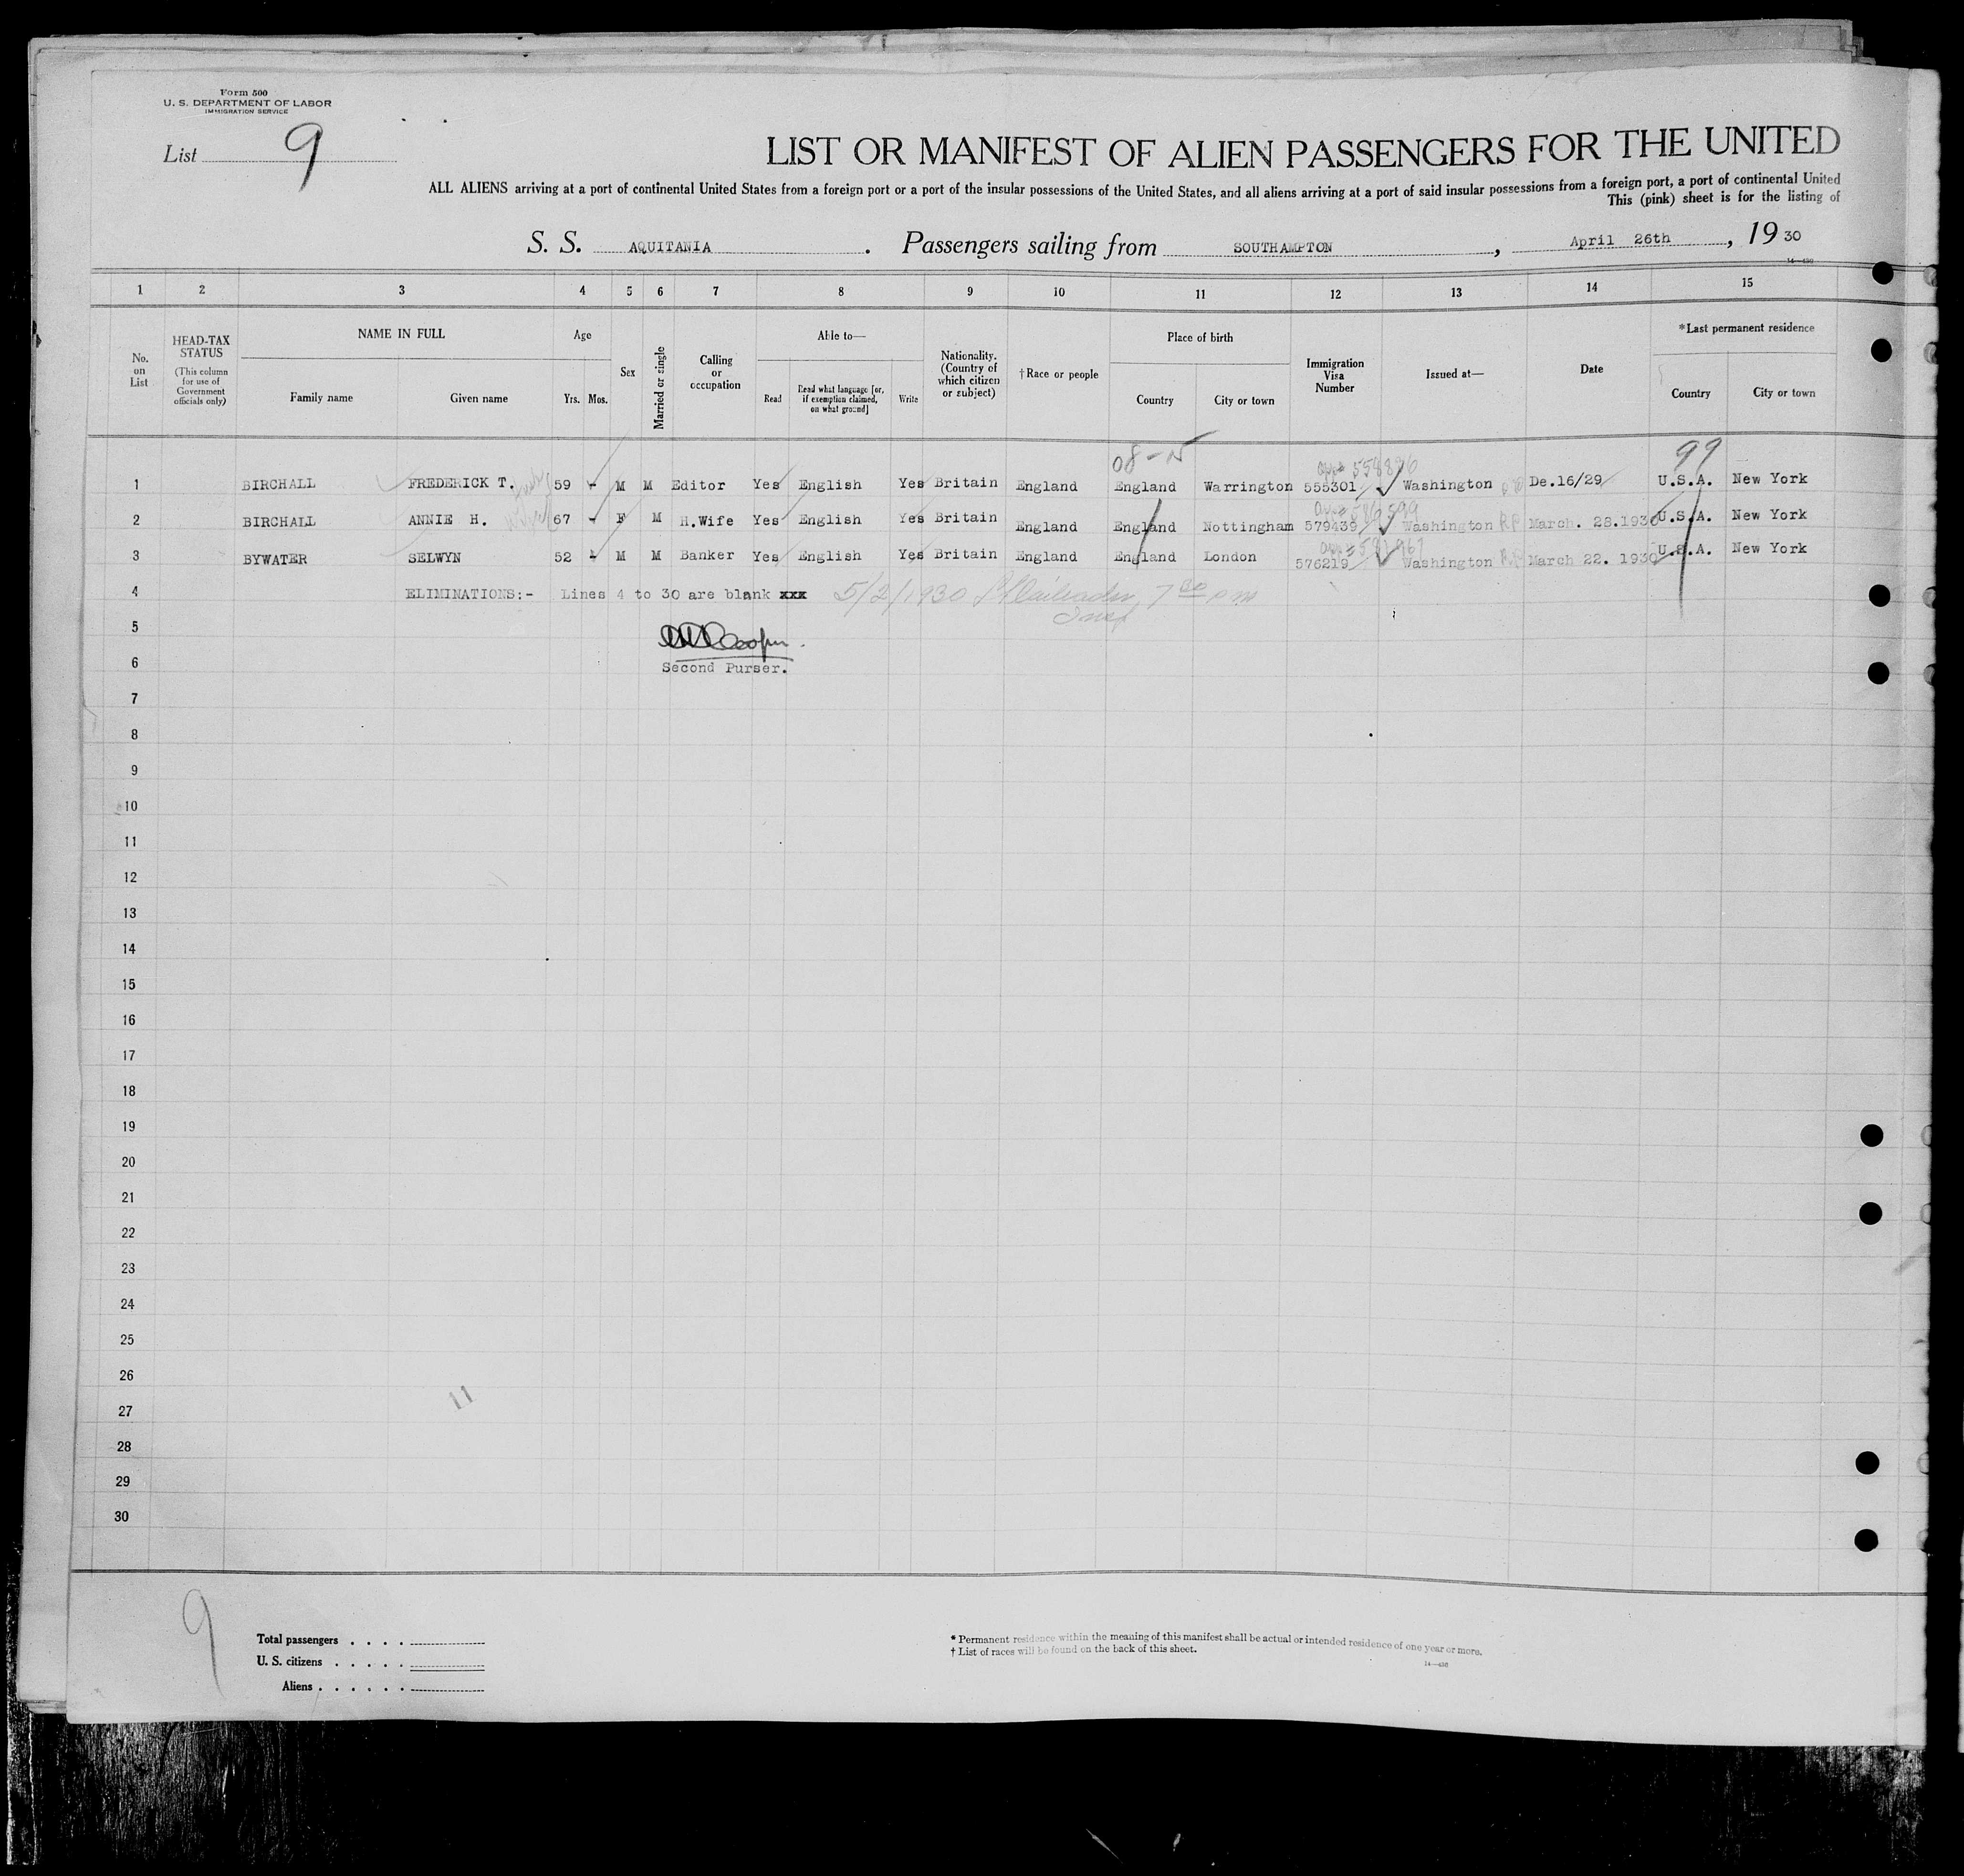 Form 500
U. S. DEPARTMENT OF LABOR
IMMIGRATION SERVICE
List 9
LIST OR MANIFEST OF ALIEN PASSENGERS FOR THE UNITED
ALL ALIENS arriving at a port of continental United States from a foreign port or a port of the insular possessions of the United States, and all aliens arriving at a port of said insular possessions from a foreign port, a port of continental United
This (pink) sheet is for the listing of
S. S. AQUITANIA. Passengers sailing from SOUTHAMPTON, April 26th, 1930
14—430
1 2 3 4 5 6 7 8 9 10 11 12 13 14 15
No. on List
HEAD-TAX STATUS
(This column for use of Government officials only)
NAME IN FULL
Family name
Given name
Age
Yrs. Mos.
Sex
Married or single
Calling or occupation
Able to—
Read
Read what language [or, if exemption claimed, on what ground]
Write
Nationality. (Country of which citizen or subject)
†Race or people
Place of birth
Country
City or town
Immigration Visa Number
Issued at—
Date
*Last permanent residence
Country
City or town
99
1 BIRCHALL FREDERICK T. 59 - M M Editor Yes English Yes Britain England England Warrington 555301 Washington De.16/29 U.S.A. New York
2 BIRCHALL ANNIE H. 67 - F M H.Wife Yes English Yes Britain England England Nottingham 579439 Washington March. 28.1930 U.S.A. New York
3 BYWATER SELWYN 52 - M M Banker Yes English Yes Britain England England London 576219 Washington March 22. 1930 U.S.A. New York
4 ELIMINATIONS:- Lines 4 to 30 are blank xxx 5/2/1930 7 00 pm
Insp
5
6 Second Purser.
7
8
9
10
11
12
13
14
15
16
17
18
19
20
21
22
23
24
25
26
27
28
29
30
11
9
Total passengers . . . .
U. S. citizens . . . . .
Aliens . . . . . .
* Permanent residence within the meaning of this manifest shall be actual or intended residence of one year or more.
† List of races will be found on the back of this sheet.
14—430